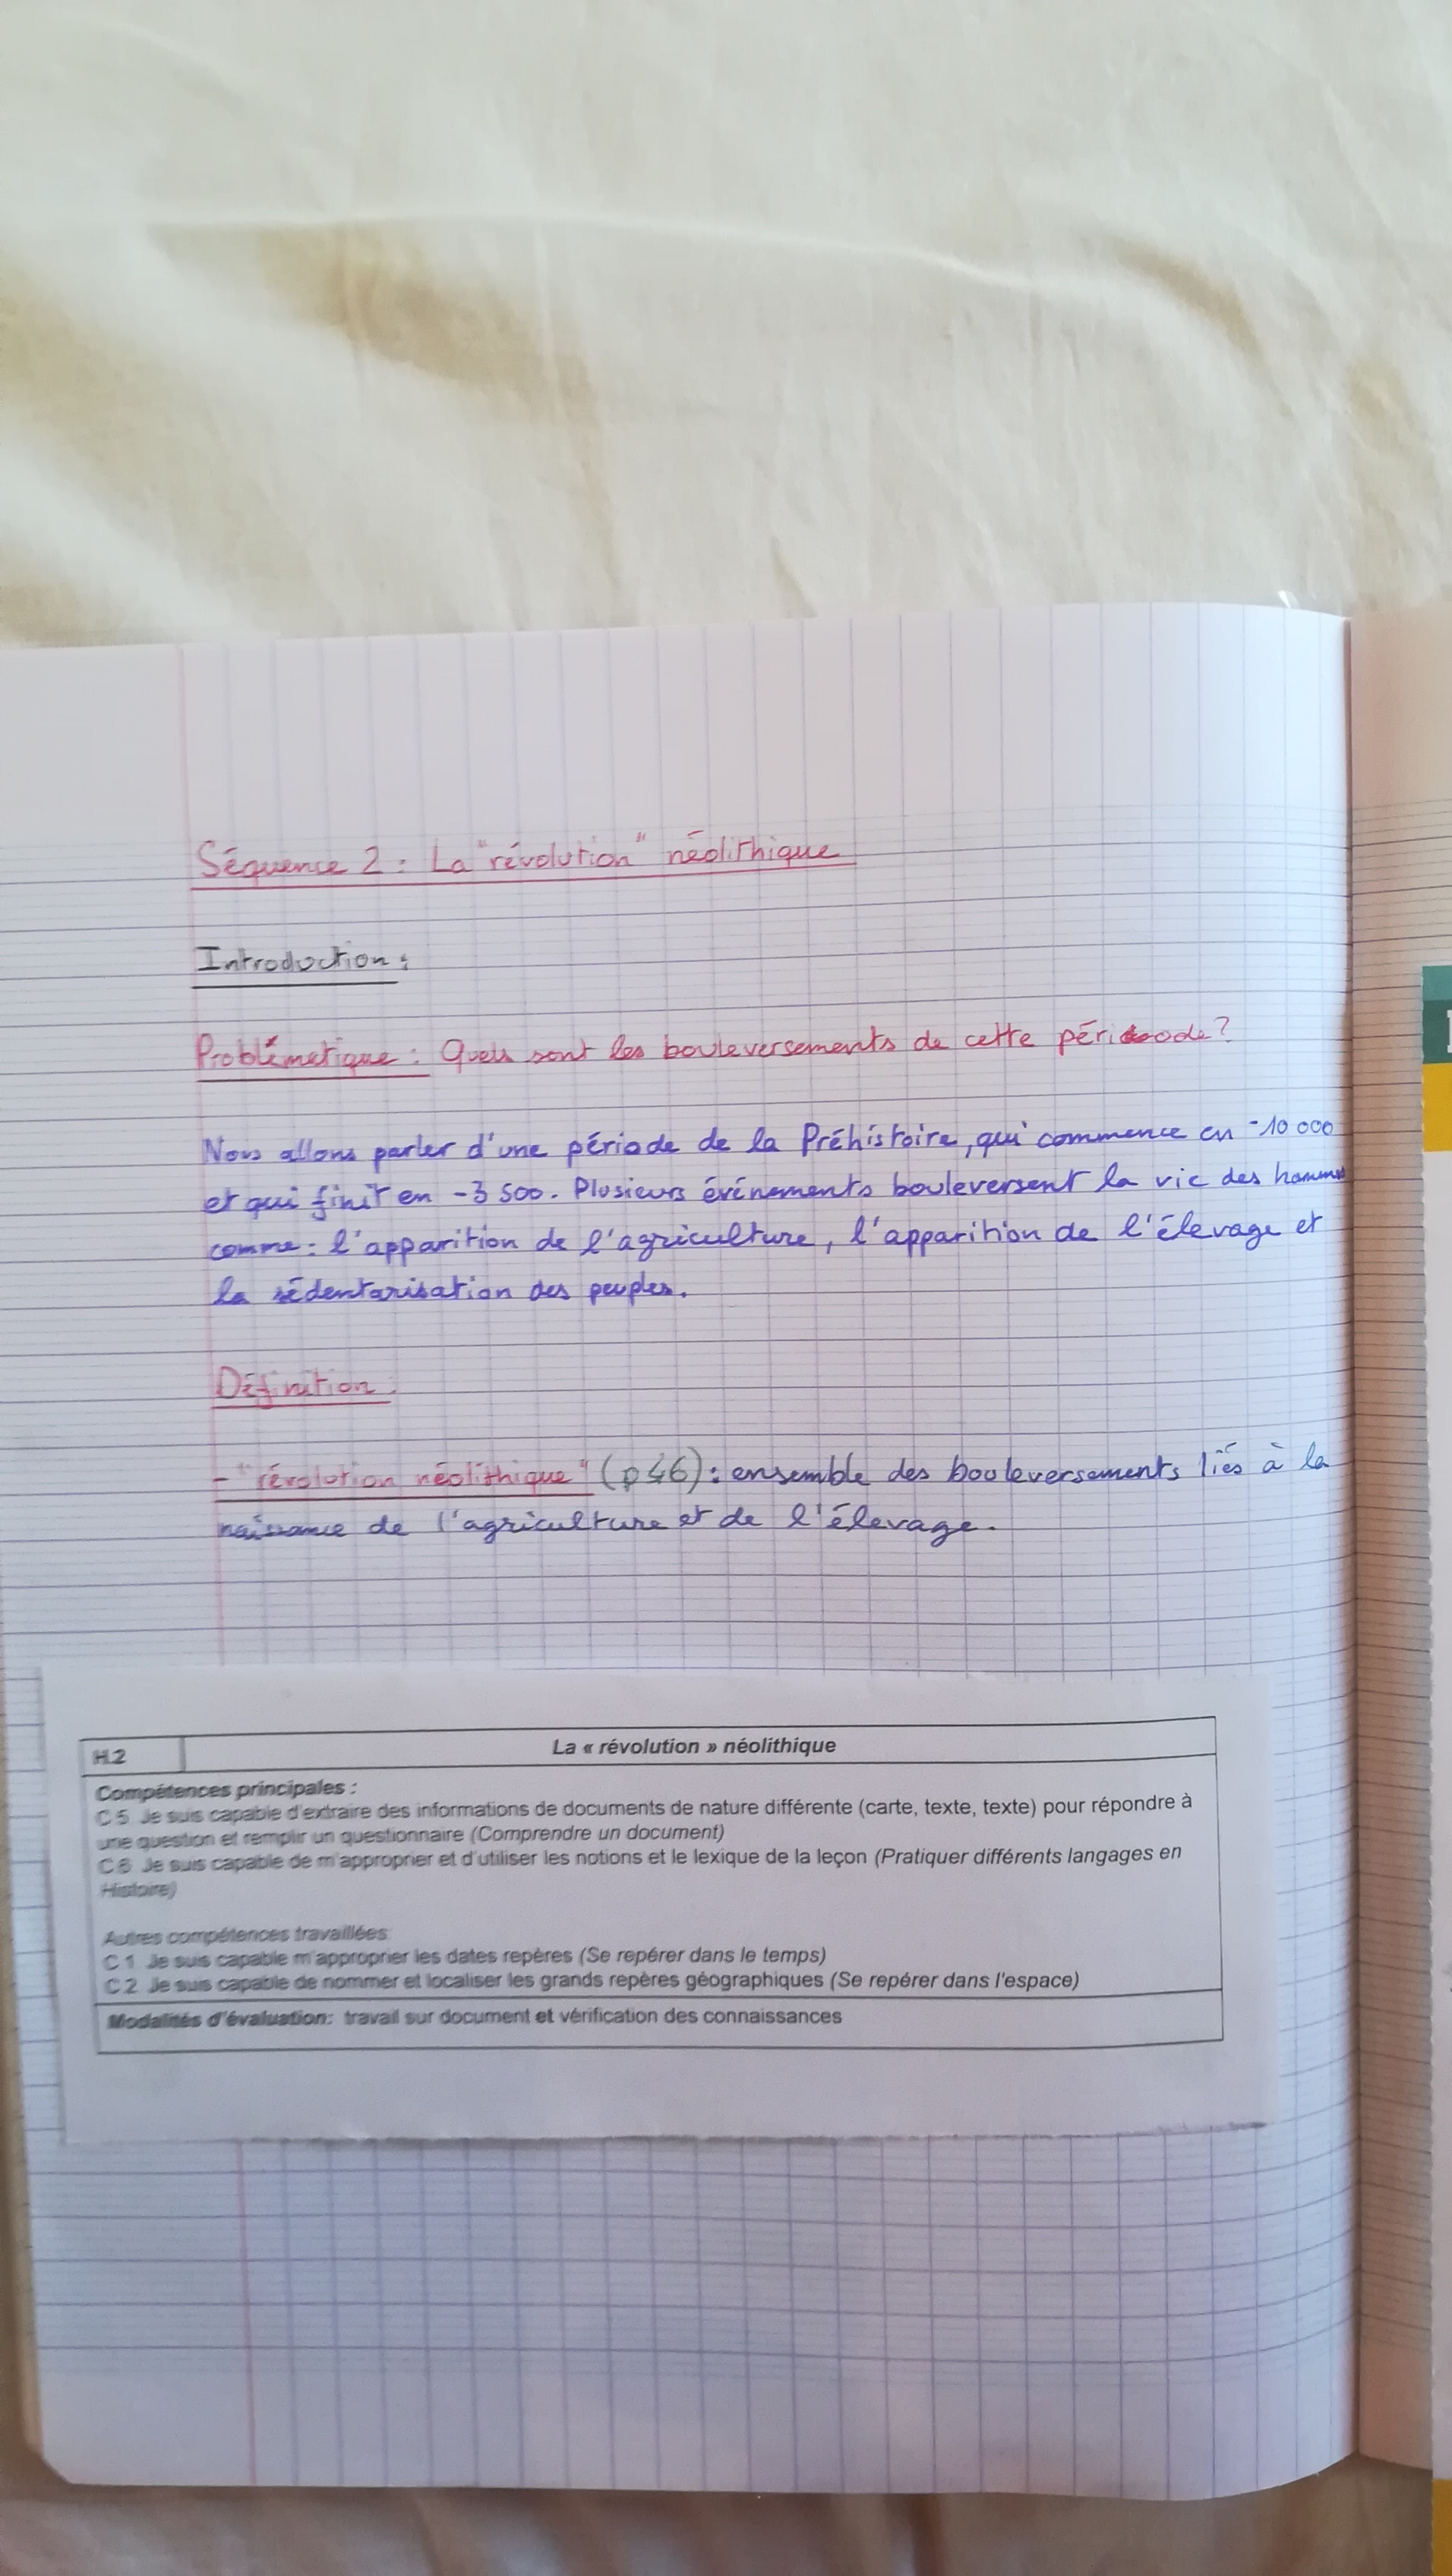 Séquence 2 : La "révolution" néolithique
Introduction :
Problématique : Quels sont les bouleversements de cette période ?
Nous allons parler d'une période de la Préhistoire, qui commence en -10 000
et qui finit en -3 500. Plusieurs événements bouleversent la vie des hommes
comme : l'apparition de l'agriculture, l'apparition de l'élevage et
la sédentarisation des peuples.
Définition :
- "révolution néolithique" (p 46) : ensemble des bouleversements liés à la
naissance de l'agriculture et de l'élevage.
H.2 La « révolution » néolithique
Compétences principales :
C 5 Je suis capable d'extraire des informations de documents de nature différente (carte, texte, texte) pour répondre à
une question et remplir un questionnaire (Comprendre un document)
C 6 Je suis capable de m'approprier et d'utiliser les notions et le lexique de la leçon (Pratiquer différents langages en
Histoire)
Autres compétences travaillées:
C 1 Je suis capable m'approprier les dates repères (Se repérer dans le temps)
C 2 Je suis capable de nommer et localiser les grands repères géographiques (Se repérer dans l'espace)
Modalités d'évaluation: travail sur document et vérification des connaissances